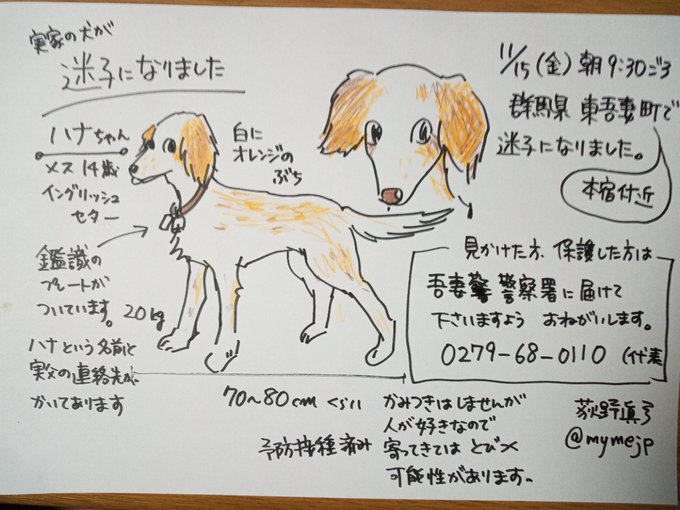 実家の犬が
迷子になりました
ハナちゃん
メス 14歳
イングリッシュ
セター
白に
オレンジの
ぶち
鑑識の
プレートが
ついています。
20kg
ハナという名前と
実父の連絡先が
かいてあります
70~80cmくらい
予防接種済み
11/15(金)朝9:30ごろ
群馬県 東吾妻町で
迷子になりました。
本宿付近
見かけた方、保護した方は
吾妻警察署に届けて
下さいますよう おねがいします。
0279-68-0110 (代表
かみつきはしませんが
人が好きなので
寄ってきては とびつく
可能性があります。
荻野眞弓
@mymejp